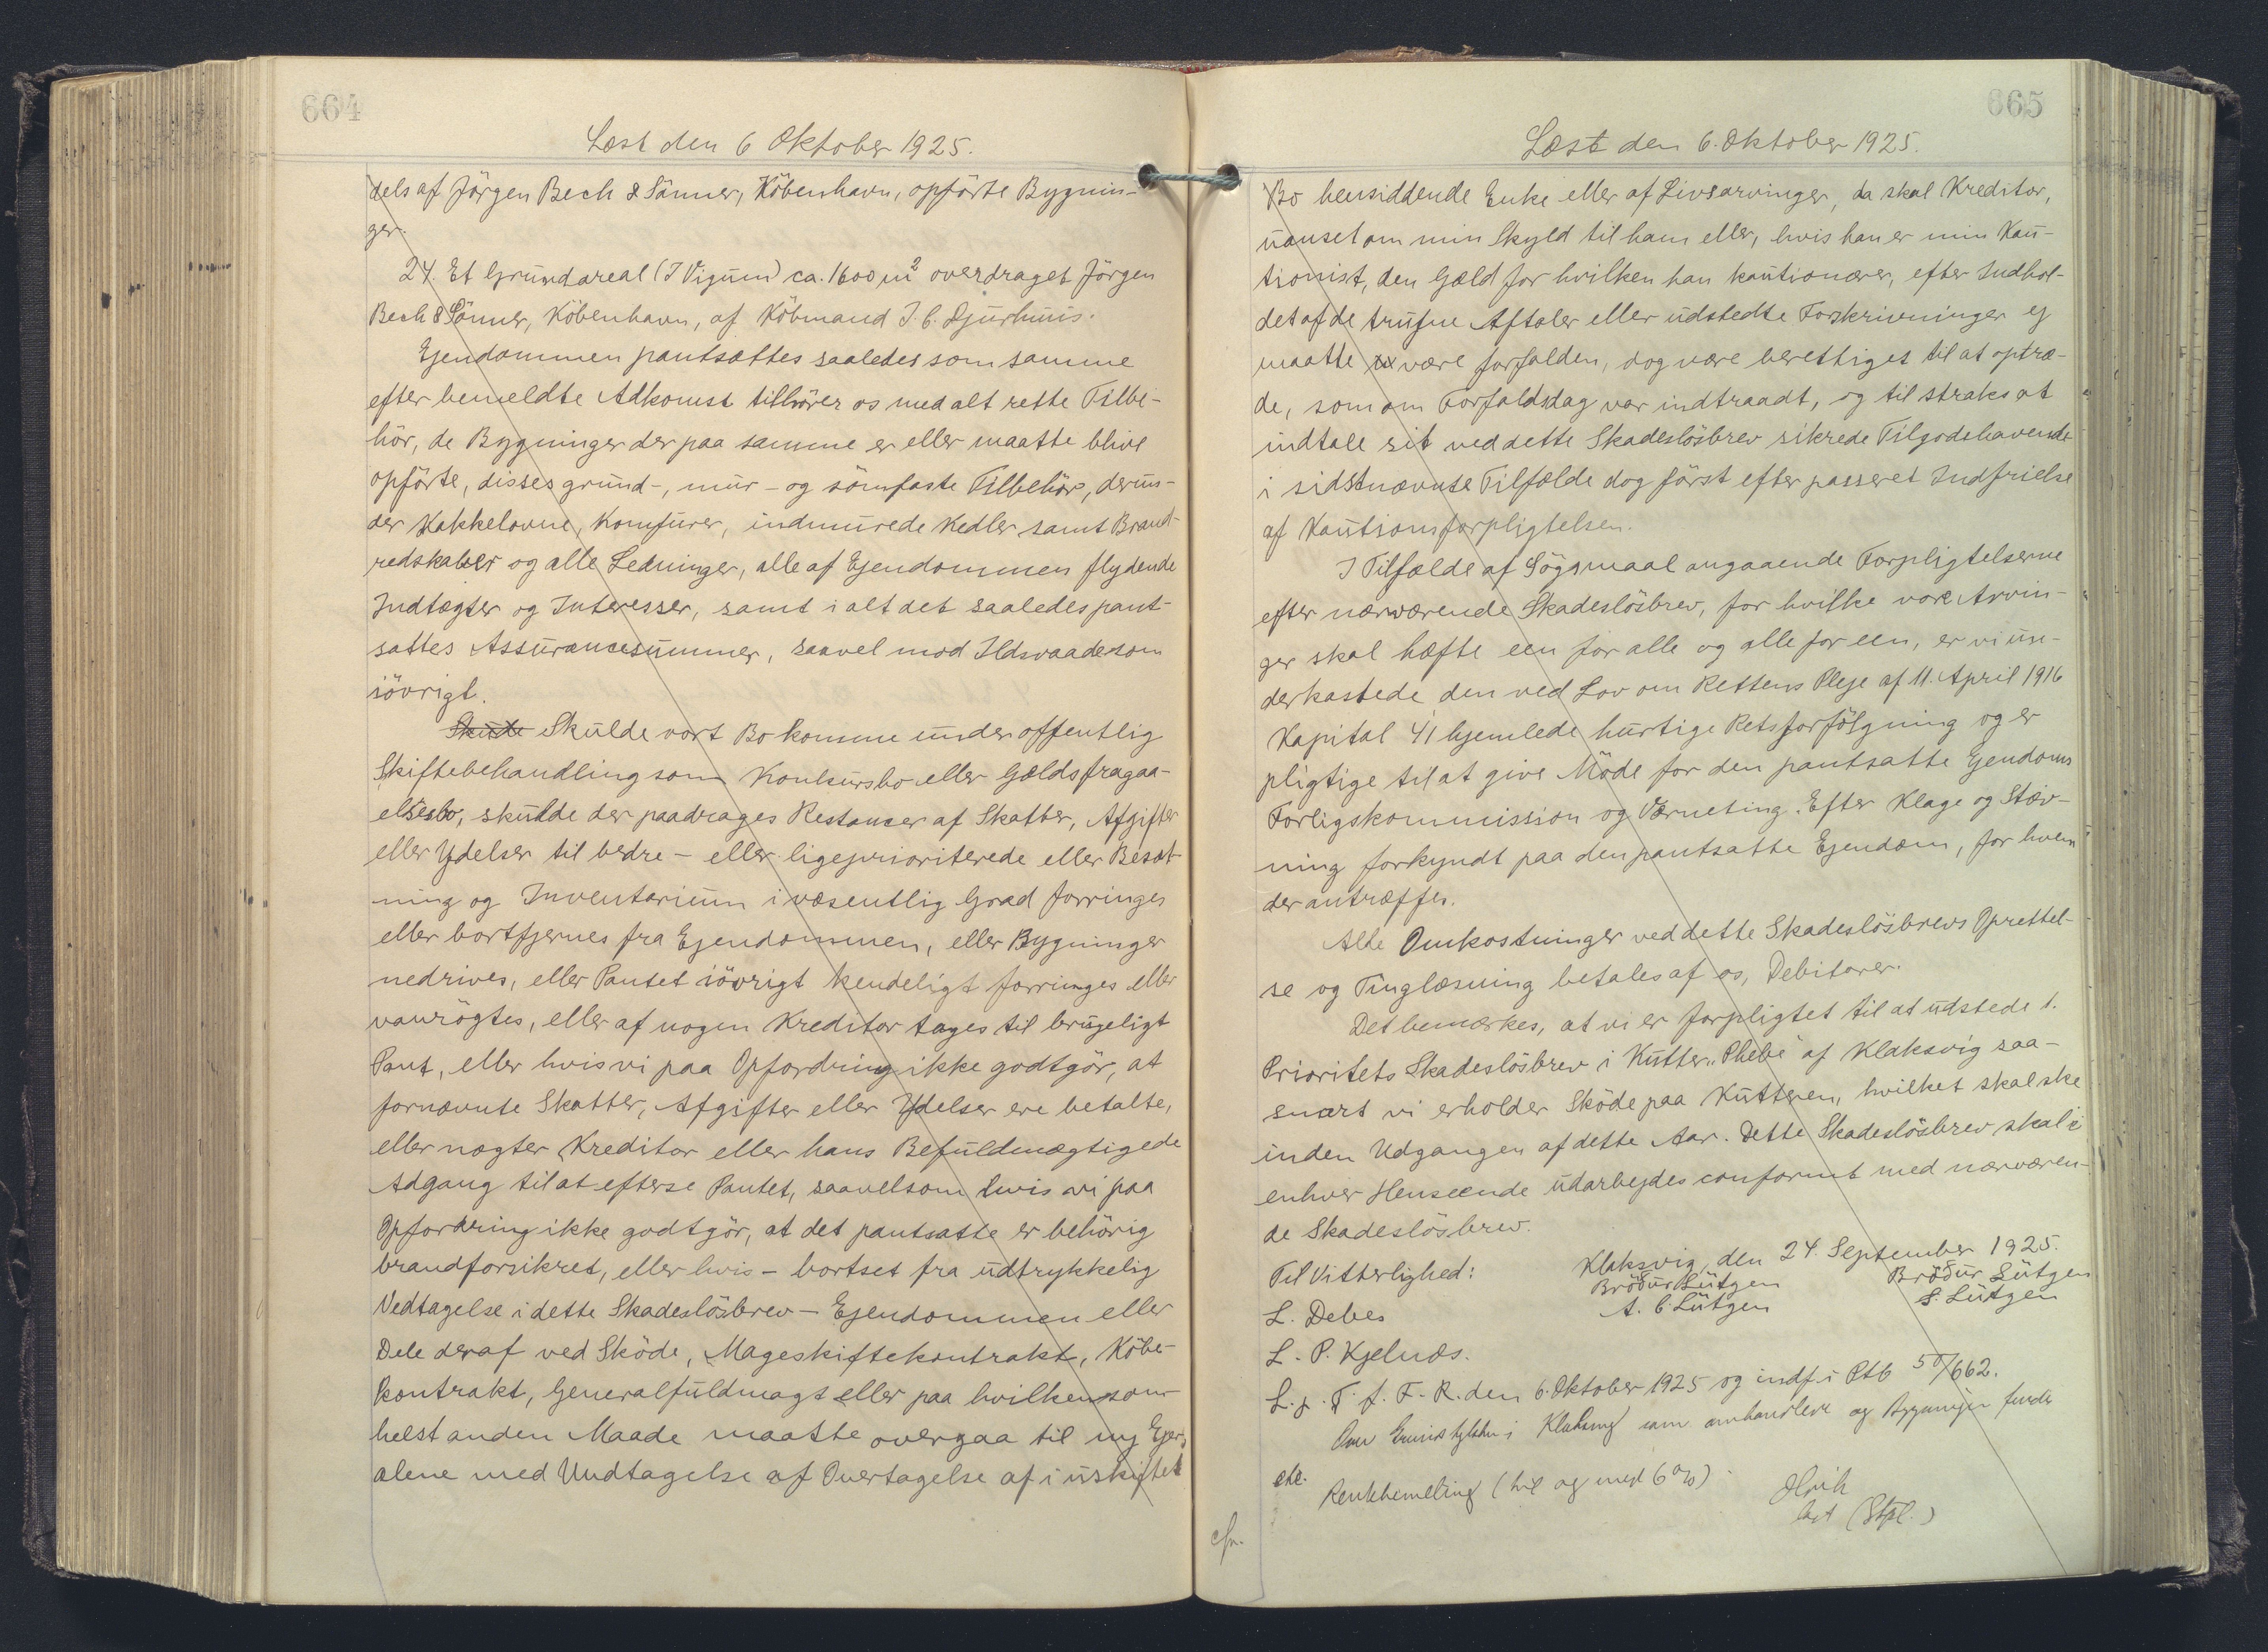 664
Læst den 6 Oktober 1925.
dels af Jörgen Bech & Sönner, Köbenhavn, opförte Bygnin-
ger.
24. Et Grundareal (I Vigum) ca. 1600 m² overdraget Jörgen
Bech & Sönner, Köbenhavn, af Köbmand J. C. Djurhuus.
Ejendommen pantsættes saaledes som samme
efter bemeldte Adkomst tilhører os med alt rette Tilbe-
hör, de Bygninger der paa samme er eller maatte blive
opförte, disses grund-, mur- og sömfaste Tilbehör, derun-
der Kakkelovne, Komfurer, indmurede Kedler samt Brand-
redskaber og alle Ledninger, alle af Ejendommen flydende
Indtægter og Interesser, samt i alt det saaledes pant-
sattes Assurancesummer, saavel mod Ildsvaade som
iövrigt.
Skude Skulde vort Bo komme under offentlig
Skiftebehandling som Konkursbo eller Gældsfragaa-
elsesbo, skulde der paadrages Restancer af Skatter, Afgifter
eller Ydelser til bedre- eller ligeprioriterede eller Besæt-
ning og Inventarium i væsentlig Grad forringes
eller bortfjernes fra Ejendommen, eller Bygninger
nedrives, eller Pantet iövrigt kendeligt forringes eller
vanrögtes, eller af nogen Kreditor tages til brugeligt
Pant, eller hvis vi paa Opfordring ikke godtgör, at
fornævnte Skatter, Afgifter eller Ydelser ere betalte,
eller nægter Kreditor eller hans Befuldmægtigede
Adgang til at efterse Pantet, saavelsom hvis vi paa
Opfordring ikke godtgör, at det pantsatte er behörig
brandforsikret, eller hvis - bortset fra udtrykkelig
Vedtagelse i dette Skadeslösbrev - Ejendommen eller
Dele deraf ved Sköde, Mageskiftekontrakt, Köbe-
kontrakt, Generalfuldmagt eller paa hvilkensom-
helst anden Maade maatte overgaa til ny Ejer,
alene med Undtagelse af Overtagelse af i uskiftet
665
Læst den 6. Oktober 1925.
Bo hensiddende Enke eller af Livsarvinger, da skal Kreditor,
uanset om min Skyld til ham eller, hvis han er min Kau-
tionist, den Gæld for hvilken han kautionerer, efter Indhol-
det af de trufne Aftaler eller udstedte Forskrivninger ej
maatte være forfalden, dog være berettiget til at optræ-
de, som om Forfaldsdag var indtraadt, og til straks at
indtale sit ved dette Skadeslösbrev sikrede Tilgodehavende
i sidstnævnte Tilfælde dog först efter passeret Indfrielse
af Kautionsforpligtelsen.
I Tilfælde af Sögsmaal angaaende Forpligtelserne
efter nærværende Skadeslösbrev, for hvilke vore Arvin-
ger skal hæfte een for alle og alle for een, er vi un-
derkastede den ved Lov om Rettens Pleje af 11. April 1916
Kapital 41 hjemlede hurtige Retsforfölgning og er
pligtige til at give Möde for den pantsatte Ejendoms
Forligskommission og Værneting. Efter Klage og Stæv-
ning forkyndt paa den pantsatte Ejendom, for hvem
der antræffes.
Alle Omkostninger ved dette Skadeslösbrevs Oprettel-
se og Tinglæsning betales af os, Debitorer.
Det bemærkes, at vi er forpligtet til at udstede 1.
Prioritets Skadeslösbrev i Kutter "Phebe" af Klaksvig saa-
snart vi erholder Sköde paa Kutteren, hvilket skal ske
inden Udgangen af dette Aar. Dette Skadeslösbrev skal i
enhver Henseende udarbejdes conformt med nærværen-
de Skadeslösbrev.
Klaksvig, den 24. September 1925.
Til Vitterlighed: Bröður Lützen Bröður Lützen
L. Debes A. C. Lützen S. Lützen
L. P. Kjelnæs.
L. p. T. f. F. R. den 6. Oktober 1925 og indf. i Ptb 50/662.
i Klaksvig som omhandlede og Bygninger
etc.
(til og med 6%)
(Stpl.)
cfr.